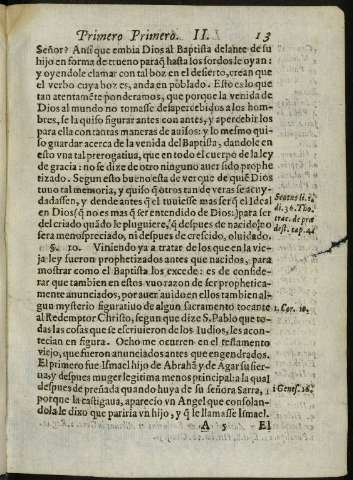 Primero Primero. II. 13
Señor? Ansi que embia Dios al Baptista delante de su
hijo en forma de trueno paraq̃ hasta los sordos le oyan:
y oyendole clamar con tal boz en el desierto, crean que
el verbo cuya boz es, anda en poblado. Esto es lo que
tan atentamẽte ponderamos, que porque la venida de
Dios al mundo no tomasse desapercebidos a los hom-
bres, se la quiso figurar antes con antes, y apercebirlos
para ella con tantas maneras de auisos: y lo mesmo qui-
so guardar acerca de la venida del Baptista, dandole en
esto vna tal prerogatiua, que en todo el cuerpo de la ley
de gracia: no se dize de otro ninguno auer sido prophe-
tizado. Segun esto bueno esta de ver que de quiẽ Dios
tuuo tal memoria, y quiso q̃ otros tan de veras se acuy-
dadassen, y dende antes q̃ el tuuiesse mas ser q̃ el Ideal
en Dios (q̃ no es mas q̃ ser entendido de Dios:) para ser
del criado quãdo le pluguiere, q̃ despues de nacido no
sera menospreciado, ni despues de crescido, oluidado.
Scotus li. 1.
di. 36. Tho.
trac. de præ
dest. cap. 4.
§. 10. Viniendo ya a tratar de los que en la vie-
ja ley fueron prophetizados antes que nacidos, para
mostrar como el Baptista los excede: es de conside-
rar que tambien en estos vuo razon de ser prophetica-
mente anunciados, por auer auido en ellos tambien al-
gun mysterio figuratiuo de algun sacramento tocante
al Redemptor Christo, segun que dize S. Pablo que to-
das las cosas que se escriuieron de los Iudios, les acon-
tecian en figura. Ocho me ocurren en el testamento
viejo, que fueron anunciados antes que engendrados.
1. Cor. 10.
El primero fue Ismael hijo de Abrahã y de Agar su sier-
ua, y despues muger legitima menos principal: a la qual
despues de preñada quando huya de su señora Sarra,
porque la castigaua, aparecio vn Angel que consolan-
dola le dixo que pariria vn hijo, y q̃ le llamasse Ismael.
1 Genes. 16.
A 5 El